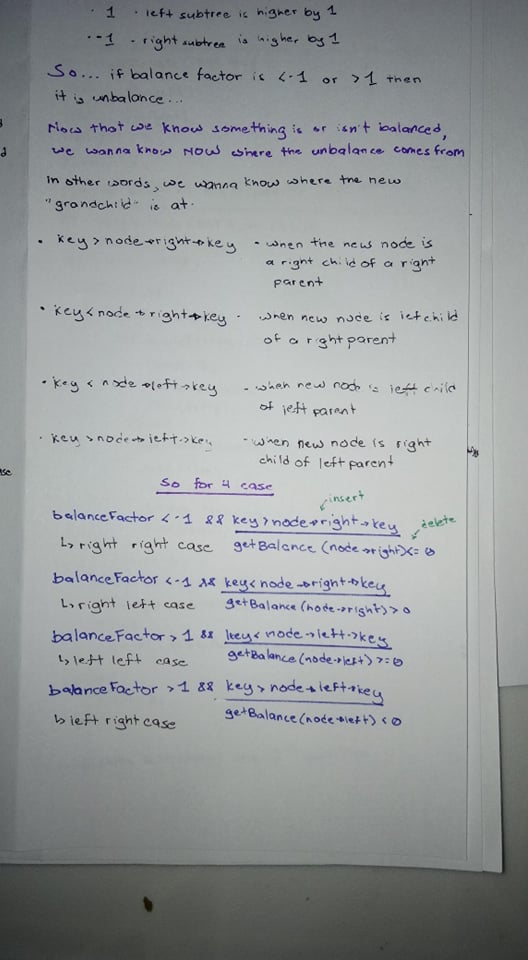 · 1 · left subtree is higher by 1
· -1 - right subtree is higher by 1
So... if balance factor is <-1 or >1 then
it is unbalance...
Now that we know something is or isn't balanced,
we wanna know NOW where the unbalance comes from
In other words, we wanna know where the new
"grandchild" is at.
• key > node→right→key - when the new node is
a right child of a right
parent
• key < node→right→key - when new node is left child
of a right parent
• key < node→left→key - when new node is left child
of left parent
· key > node→left→key - when new node is right
child of left parent
So for 4 case
insert
balanceFactor <-1 && key > node→right→key
delete
↳ right right case getBalance(node→right) <= 0
balanceFactor <-1 && key < node→right→key
↳ right left case getBalance(node→right) > 0
balanceFactor > 1 && key < node→left→key
↳ left left case getBalance(node→left) >= 0
balanceFactor > 1 && key > node→left→key
↳ left right case getBalance(node→left) < 0